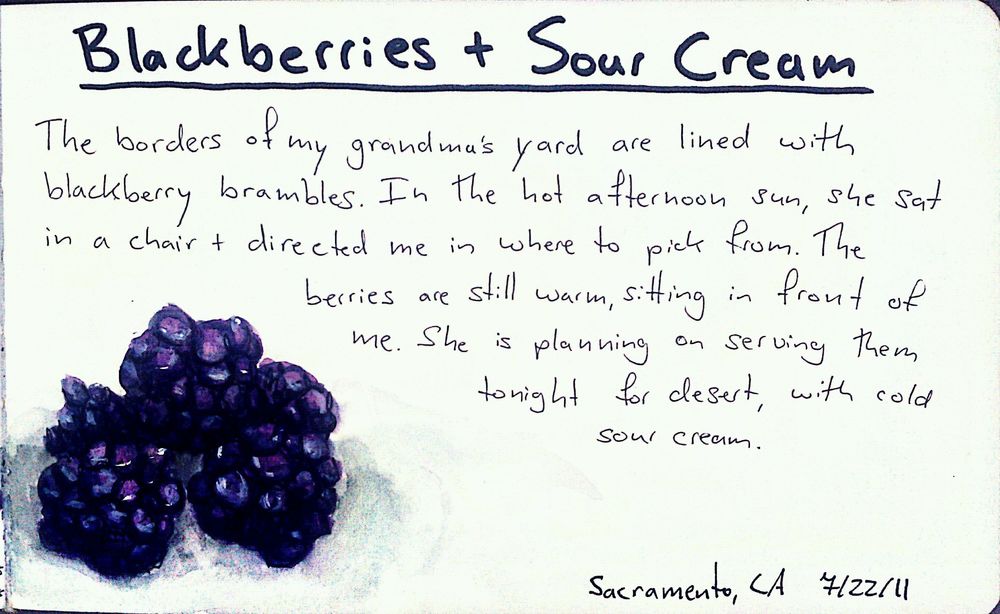 Blackberries + Sour Cream
The borders of my grandma's yard are lined with
blackberry brambles. In the hot afternoon sun, she sat
in a chair + directed me in where to pick from. The
berries are still warm, sitting in front of
me. She is planning on serving them
tonight for desert, with cold
sour cream.
Sacramento, CA 7/22/11